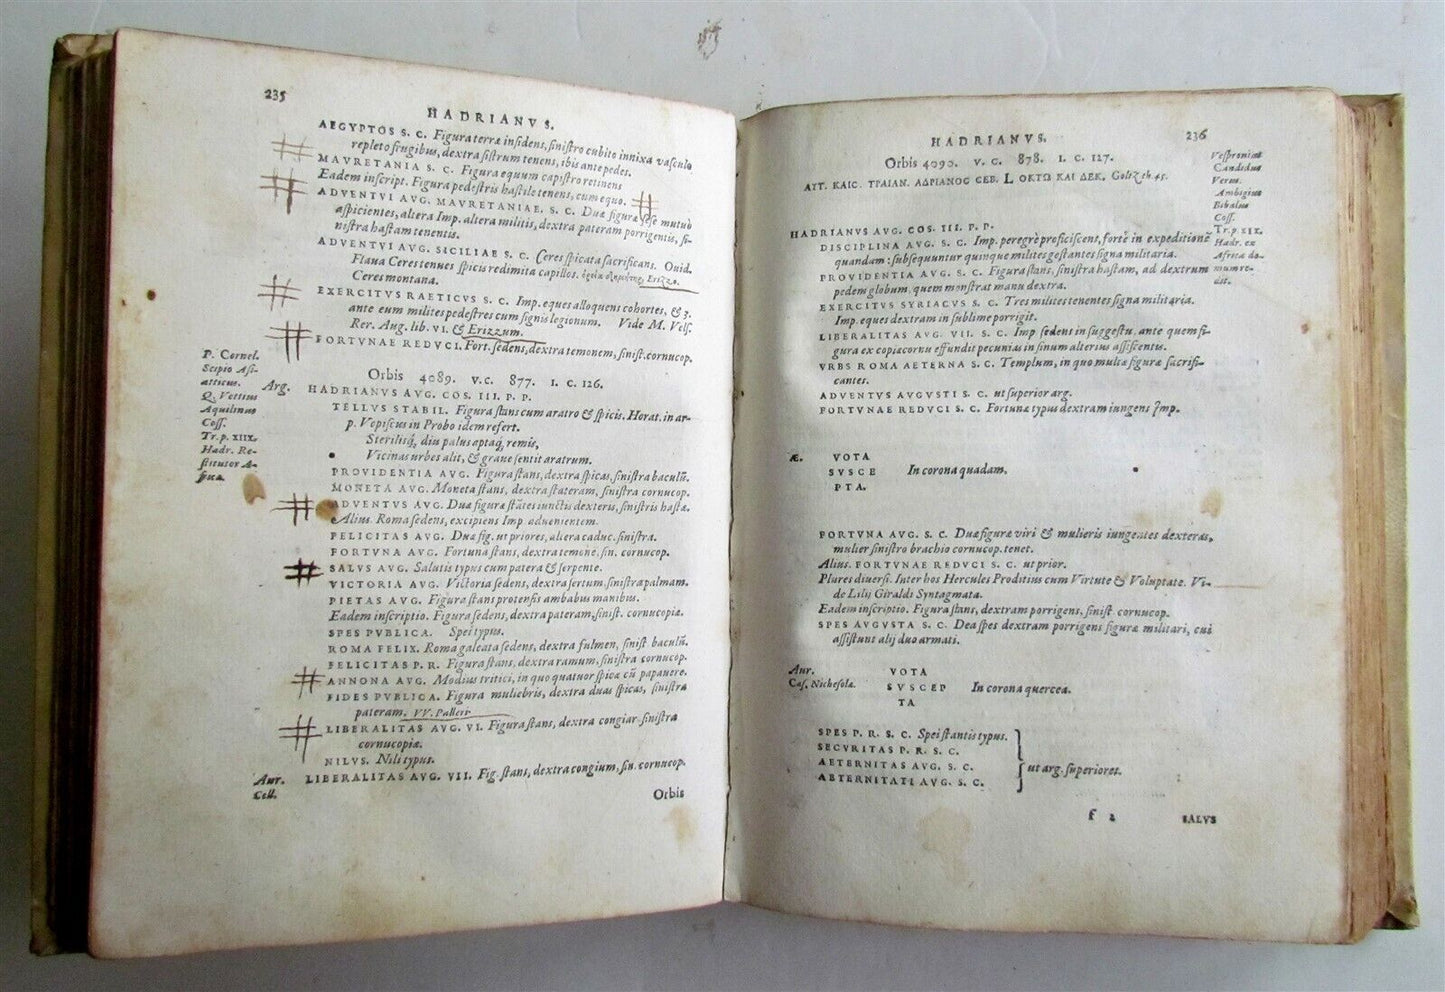 235
HADRIANVS.
AEGYPTOS S. C. Figura terræ insidens, sinistro cubito innixa vasculo
repleto frugibus, dextra sistrum tenens, ibis ante pedes.
MAVRETANIA S. C. Figura equum capistro retinens
Eadem inscript. Figura pedestris hastile tenens, cum equo.
ADVENTVI AVG. MAVRETANIAE. S. C. Duæ figuræ sese mutuò
aspicientes, altera Imp. altera militis, dextra pateram porrigentis, si-
nistra hastam tenentis.
ADVENTVI AVG. SICILIAE S. C. Ceres spicata sacrificans. Ouid.
Flaua Ceres tenues spicis redimita capillos. Erizzo.
Ceres montana.
EXERCITVS RAETICVS S. C. Imp. eques alloquens cohortes, & 3.
ante eum milites pedestres cum signis legionum. Vide M. Vels.
Rer. Aug. lib. VI. & Erizzum.
FORTVNAE REDVCI. Fort. sedens, dextra temonem, sinist. cornucop.
P. Cornel.
Scipio Asi-
atticus.
Q. Vettius
Aquilinus
Coss.
Tr. p. XIIX.
Hadr. Re-
stitutor A-
fricæ.
Orbis 4089. V. C. 877. I. C. 126.
Arg. HADRIANVS AVG. COS. III. P. P.
TELLVS STABIL. Figura stans cum aratro & spicis. Horat. in ar-
p. Vopiscus in Probo idem refert.
Sterilisq́, diu palus aptaq́, remis,
Vicinas urbes alit, & graue sentit aratrum.
PROVIDENTIA AVG. Figura stans, dextra spicas, sinistra baculũ.
MONETA AVG. Moneta stans, dextra stateram, sinistra cornucop.
ADVENTVS AVG. Duæ figuræ stãtes iunctis dexteris, sinistris hastæ.
Alius. Roma sedens, excipiens Imp aduenientem.
FELICITAS AVG. Duæ fig. ut priores, altera caduc. sinistra.
FORTVNA AVG. Fortuna stans, dextra temonẽ, sin. cornucop.
SALVS AVG. Salutis typus cum patera & serpente.
VICTORIA AVG. Victoria sedens, dextra sertum, sinistra palmam.
PIETAS AVG. Figura stans protensis ambabus manibus.
Eadem inscriptio. Figura sedens, dextra pateram, sinist. cornucopiæ.
SPES PVBLICA. Spei typus.
ROMA FELIX. Roma galeata sedens, dextra fulmen, sinist baculũ.
FELICITAS P. R. Figura stans, dextra ramum, sinistra cornucop.
ANNONA AVG. Modius tritici, in quo quatuor spicæ cũ papauere.
FIDES PVBLICA. Figura muliebris, dextra duas spicas, sinistra
pateram. VV. Palleri
LIBERALITAS AVG. VI. Figura stans, dextra congiar. sinistra
cornucopiæ.
NILVS. Nili typus.
Aur. LIBERALITAS AVG. VII. Fig. stans, dextra congium, sin. cornucop.
Cell.
Orbis
HADRIANVS. 236
Orbis 4090. V. C. 878. I. C. 127.
ΑΥΤ. ΚΑΙC. ΤΡΑΙΑΝ. ΑΔΡΙΑΝΟC CΕΒ. L ΟΚΤΩ ΚΑΙ ΔΕΚ. Goltz th. 45.
Vesproniat
Candidus
Verus.
Ambigius
Bibulus
Coss.
Tr. p. XIX.
Hadr. ex
Africa do-
mum re-
dit.
HADRIANVS AVG. COS. III. P. P.
DISCIPLINA AVG. S. C. Imp. peregrè proficiscens, fortè in expeditionẽ
quandam: subsequuntur quinque milites gestantes signa militaria.
PROVIDENTIA AVG. S. C. Figura stans, sinistra hastam, ad dextrum
pedem globum, quem monstrat manu dextra.
EXERCITVS SYRIACVS S. C. Tres milites tenentes signa militaria.
Imp. eques dextram in sublime porrigit.
LIBERALITAS AVG. VII. S. C. Imp sedens in suggestu, ante quem fi-
gura ex copiæ cornu effundit pecunias in sinum alterius assistentis.
VRBS ROMA AETERNA S. C. Templum, in quo multæ figuræ sacrifi-
cantes.
ADVENTVS AVGVSTI S. C. ut superior arg.
FORTVNAE REDVCI S. C. Fortunæ typus dextram iungens Imp.
Æ. VOTA
SVSCE In corona quadam.
PTA.
FORTVNA AVG. S. C. Duæ figuræ viri & mulieris iungentes dexteras,
mulier sinistro brachio cornucop. tenet.
Alius. FORTVNAE REDVCI S. C. ut prior.
Plures diuersi. Inter hos Hercules Proditius cum Virtute & Voluptate. Vi-
de Lilij Giraldi Syntagmata.
Eadem inscriptio. Figura stans, dextram porrigens, sinist. cornucop.
SPES AVGVSTA S. C. Dea spes dextram porrigens figuræ militari, cui
assistunt alij duo armati.
Aur. VOTA
Cæs. Nichesola. SVSCEP In corona quercea.
TA
SPES P. R. S. C. Spei stantis typus.
SECVRITAS P. R. S. C.
AETERNITAS AVG. S. C. ut arg. superiores.
AETERNITATI AVG. S. C.
f 2 SALVS